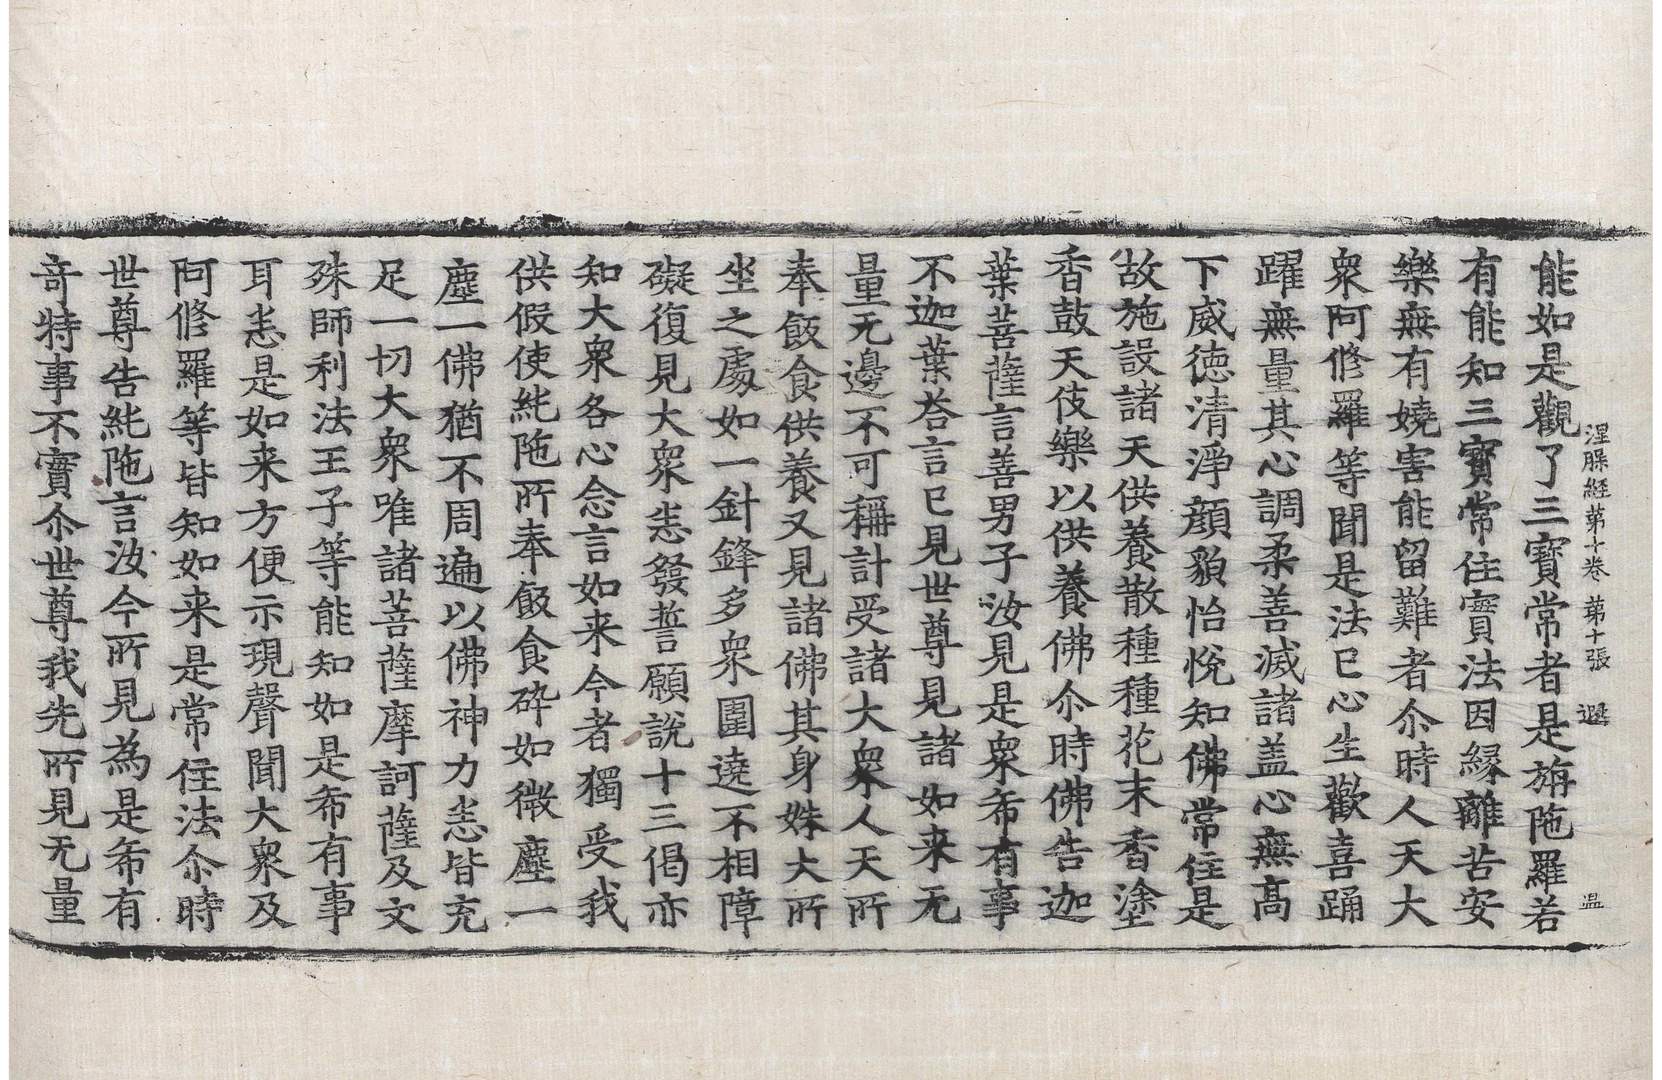 涅槃経苐十卷 苐十張 遐 温
能如是觀了三寶常者是旃陁羅若
有能知三寶常住實法因縁離苦安
樂無有嬈害能留難者尒時人天大
衆阿修羅等聞是法已心生歡喜踊
躍無量其心調柔善滅諸盖心無高
下威德清淨顔貌怡悅知佛常住是
故施設諸天供養散種種花末香塗
香鼓天伎樂以供養佛尒時佛告迦
葉菩薩言善男子汝見是衆希有事
不迦葉荅言已見世尊見諸如来无
量无邊不可稱計受諸大衆人天所
奉飯食供養又見諸佛其身姝大所
坐之處如一針鋒多衆圍遶不相障
礙復見大衆悉發誓願說十三偈亦
知大衆各心念言如来今者獨受我
供假使純陁所奉飯食碎如微塵一
塵一佛猶不周遍以佛神力悉皆充
足一切大衆唯諸菩薩摩訶薩及文
殊師利法王子等能知如是希有事
耳悉是如来方便示現聲聞大衆及
阿修羅等皆知如来是常住法尒時
世尊告純陁言汝今所見為是希有
奇特事不實尒世尊我先所見无量